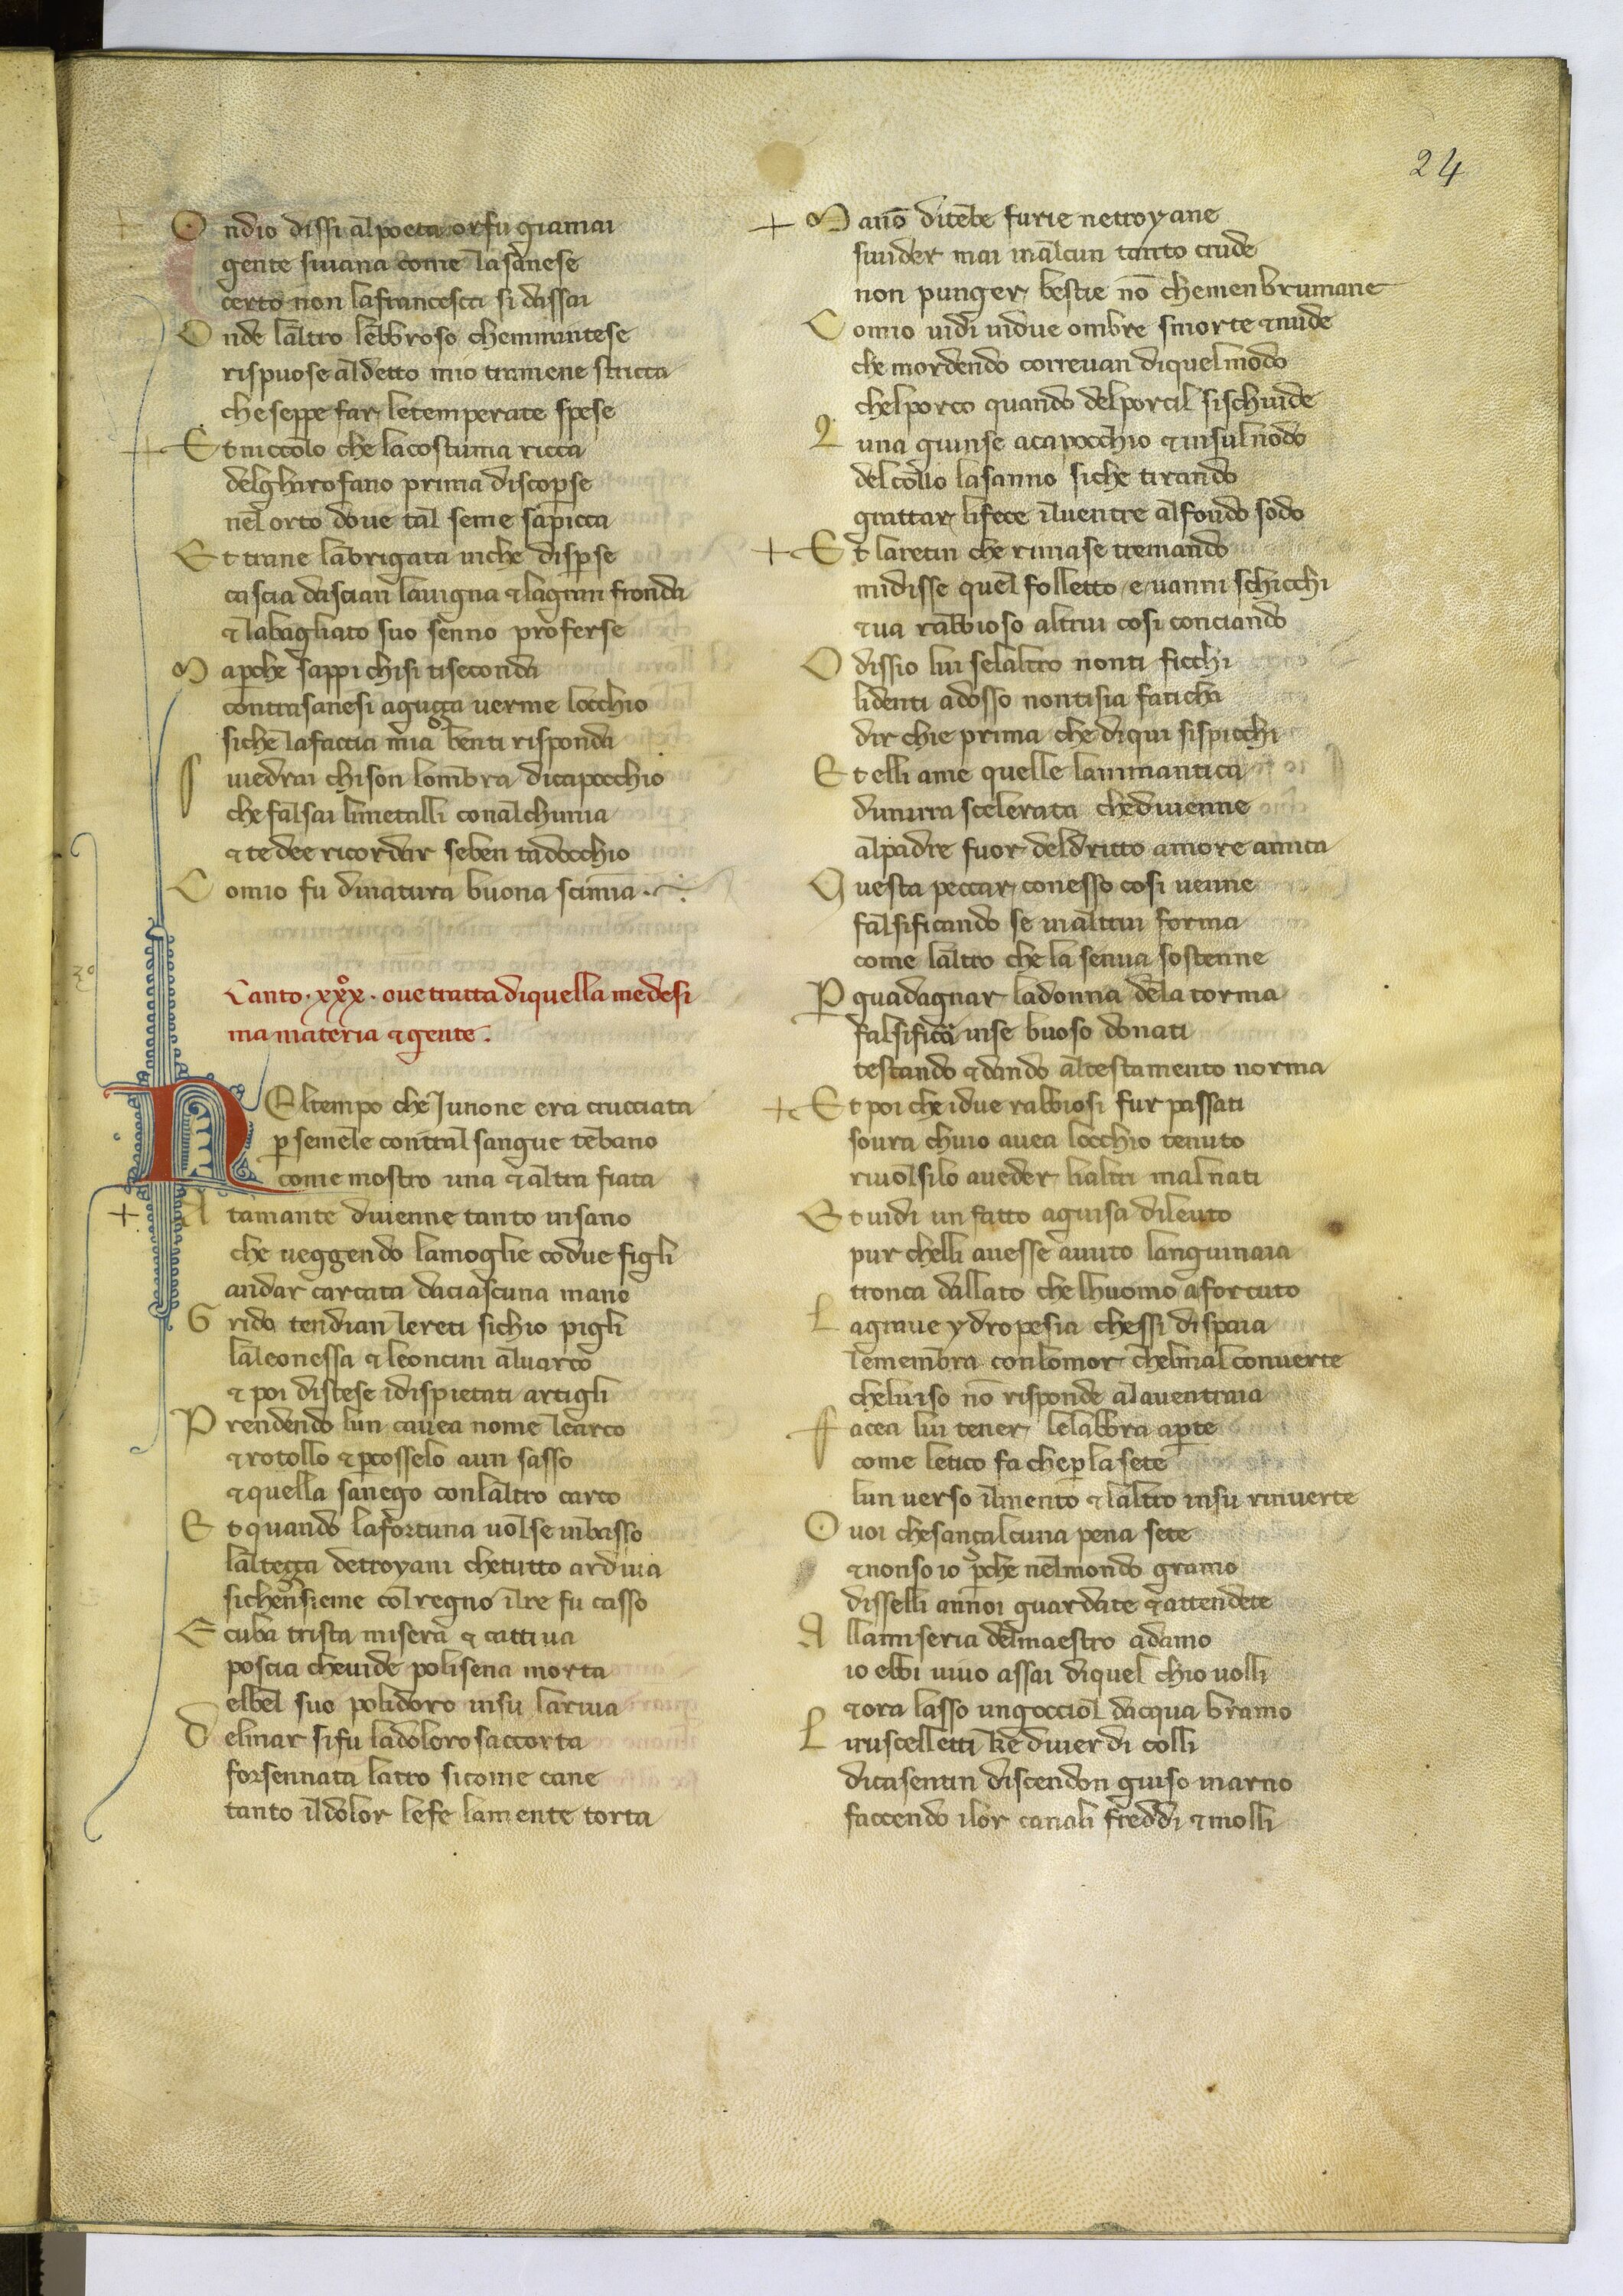 24
O ndio dissi al poeta or fu giamai
gente si uana come lasanese
certo non lafrancesca si dassai
O nde laltro lebbroso chemmintese
rispuose aldetto mio tramene stricca
che seppe far letemperate spese
Et niccolo che lacostuma ricca
delgharofano prima discoperse
nel orto doue tal seme sapicca
Et trane labrigata inche disperse
caccia dascian lauigna ⁊ lagran fronda
⁊ labagliato suo senno proferse
M a perche sappi chi si tiseconda
contra sanesi aguçça uer me locchio
siche lafaccia mia ben ti risponda
S i uedrai chi son lombra dicapocchio
che falsai limetalli con alchimia
⁊ te dee ricordar se ben tadocchio
C omio fu dinatura buona scimia
Canto .xxx°. oue tratta diquella medesi
ma materia ⁊ gente.
NEltempo che Junone era crucciata
p semele contral sangue tebano
come mostro una ⁊ altra fiata
A tamante diuenne tanto insano
che ueggendo lamoglie co due figli
andar carcata daciascuna mano
G rido tendian lereti sichio pigli
la leonessa ⁊ leoncini aluarco
⁊ poi distese idispietati artigli
P rendendo lun cauea nome learco
⁊ rotollo ⁊ percosselo aun sasso
⁊ quella sanego conlaltro carco
Et quando lafortuna uolse inbasso
laltecça detroyani chetutto ardiua
sichensieme col regno ilre fu casso
E cuba trista misera ⁊ cattiua
poscia cheuide polisena morta
elbel suo polidoro insu lariua
D elmar sifu ladolorosaccorta
forsennata latro sicome cane
tanto ildolor lefe lamente torta
M a nō ditebe furie netroyane
siuider mai inalcun tanto crude
non punger bestie nō chemenbrumane
C omio uidi indue ombre smorte ⁊ nude
che mordendo correuan diquelmodo
chelporco quando delporcil sischiude
L una giunse acapocchio ⁊ insulnodo
delcollo lasanno siche tirando
grattar lifece iluentre alfondo sodo
Et laretin che rimase tremando
midisse quel folletto e uanni schicchi
⁊ ua rabbioso altrui cosi conciando
O dissio lui selaltro nonti ficchi
lidenti adosso nontisia faticha
dir chie prima che diqui sispicchi
Et elli ame quelle lanimantica
dimirra scelerata chediuenne
alpadre fuor deldritto amore amica
Q uesta peccar conesso cosi uenne
falsificando se inaltrui forma
come laltro che la senua sostenne
P guadagnar ladonna dela torma
falsificare inse buoso donati
testando ⁊ dando altestamento norma
Et poi che idue rabbiosi fur passati
soura chuio auea locchio tenuto
riuolsilo aueder lialtri mal nati
Et uidi un fatto aguisa dileuto
pur chelli auesse auuto languinaia
tronca dallato che lhuomo a forcuto
L a graue ydropesia chessi dispaia
lemembra conlomor chelmal conuerte
cheluiso nō risponde alauentraia
F acea lui tener lelabbra aperte
come letico fa che p lasete
lun uerso ilmento ⁊ laltro insu rinuerte
O uoi chesançalcuna pena sete
⁊ nonso io perche nelmondo gramo
disselli annoi guardate ⁊ attendete
A llamiseria delmaestro adamo
io ebbi uiuo assai diquel chio uolli
⁊ ora lasso ungocciol dacqua bramo
L iruscelletti ke diuerdi colli
dicasentin discendon giuso inarno
faccendo ilor canali freddi ⁊ molli